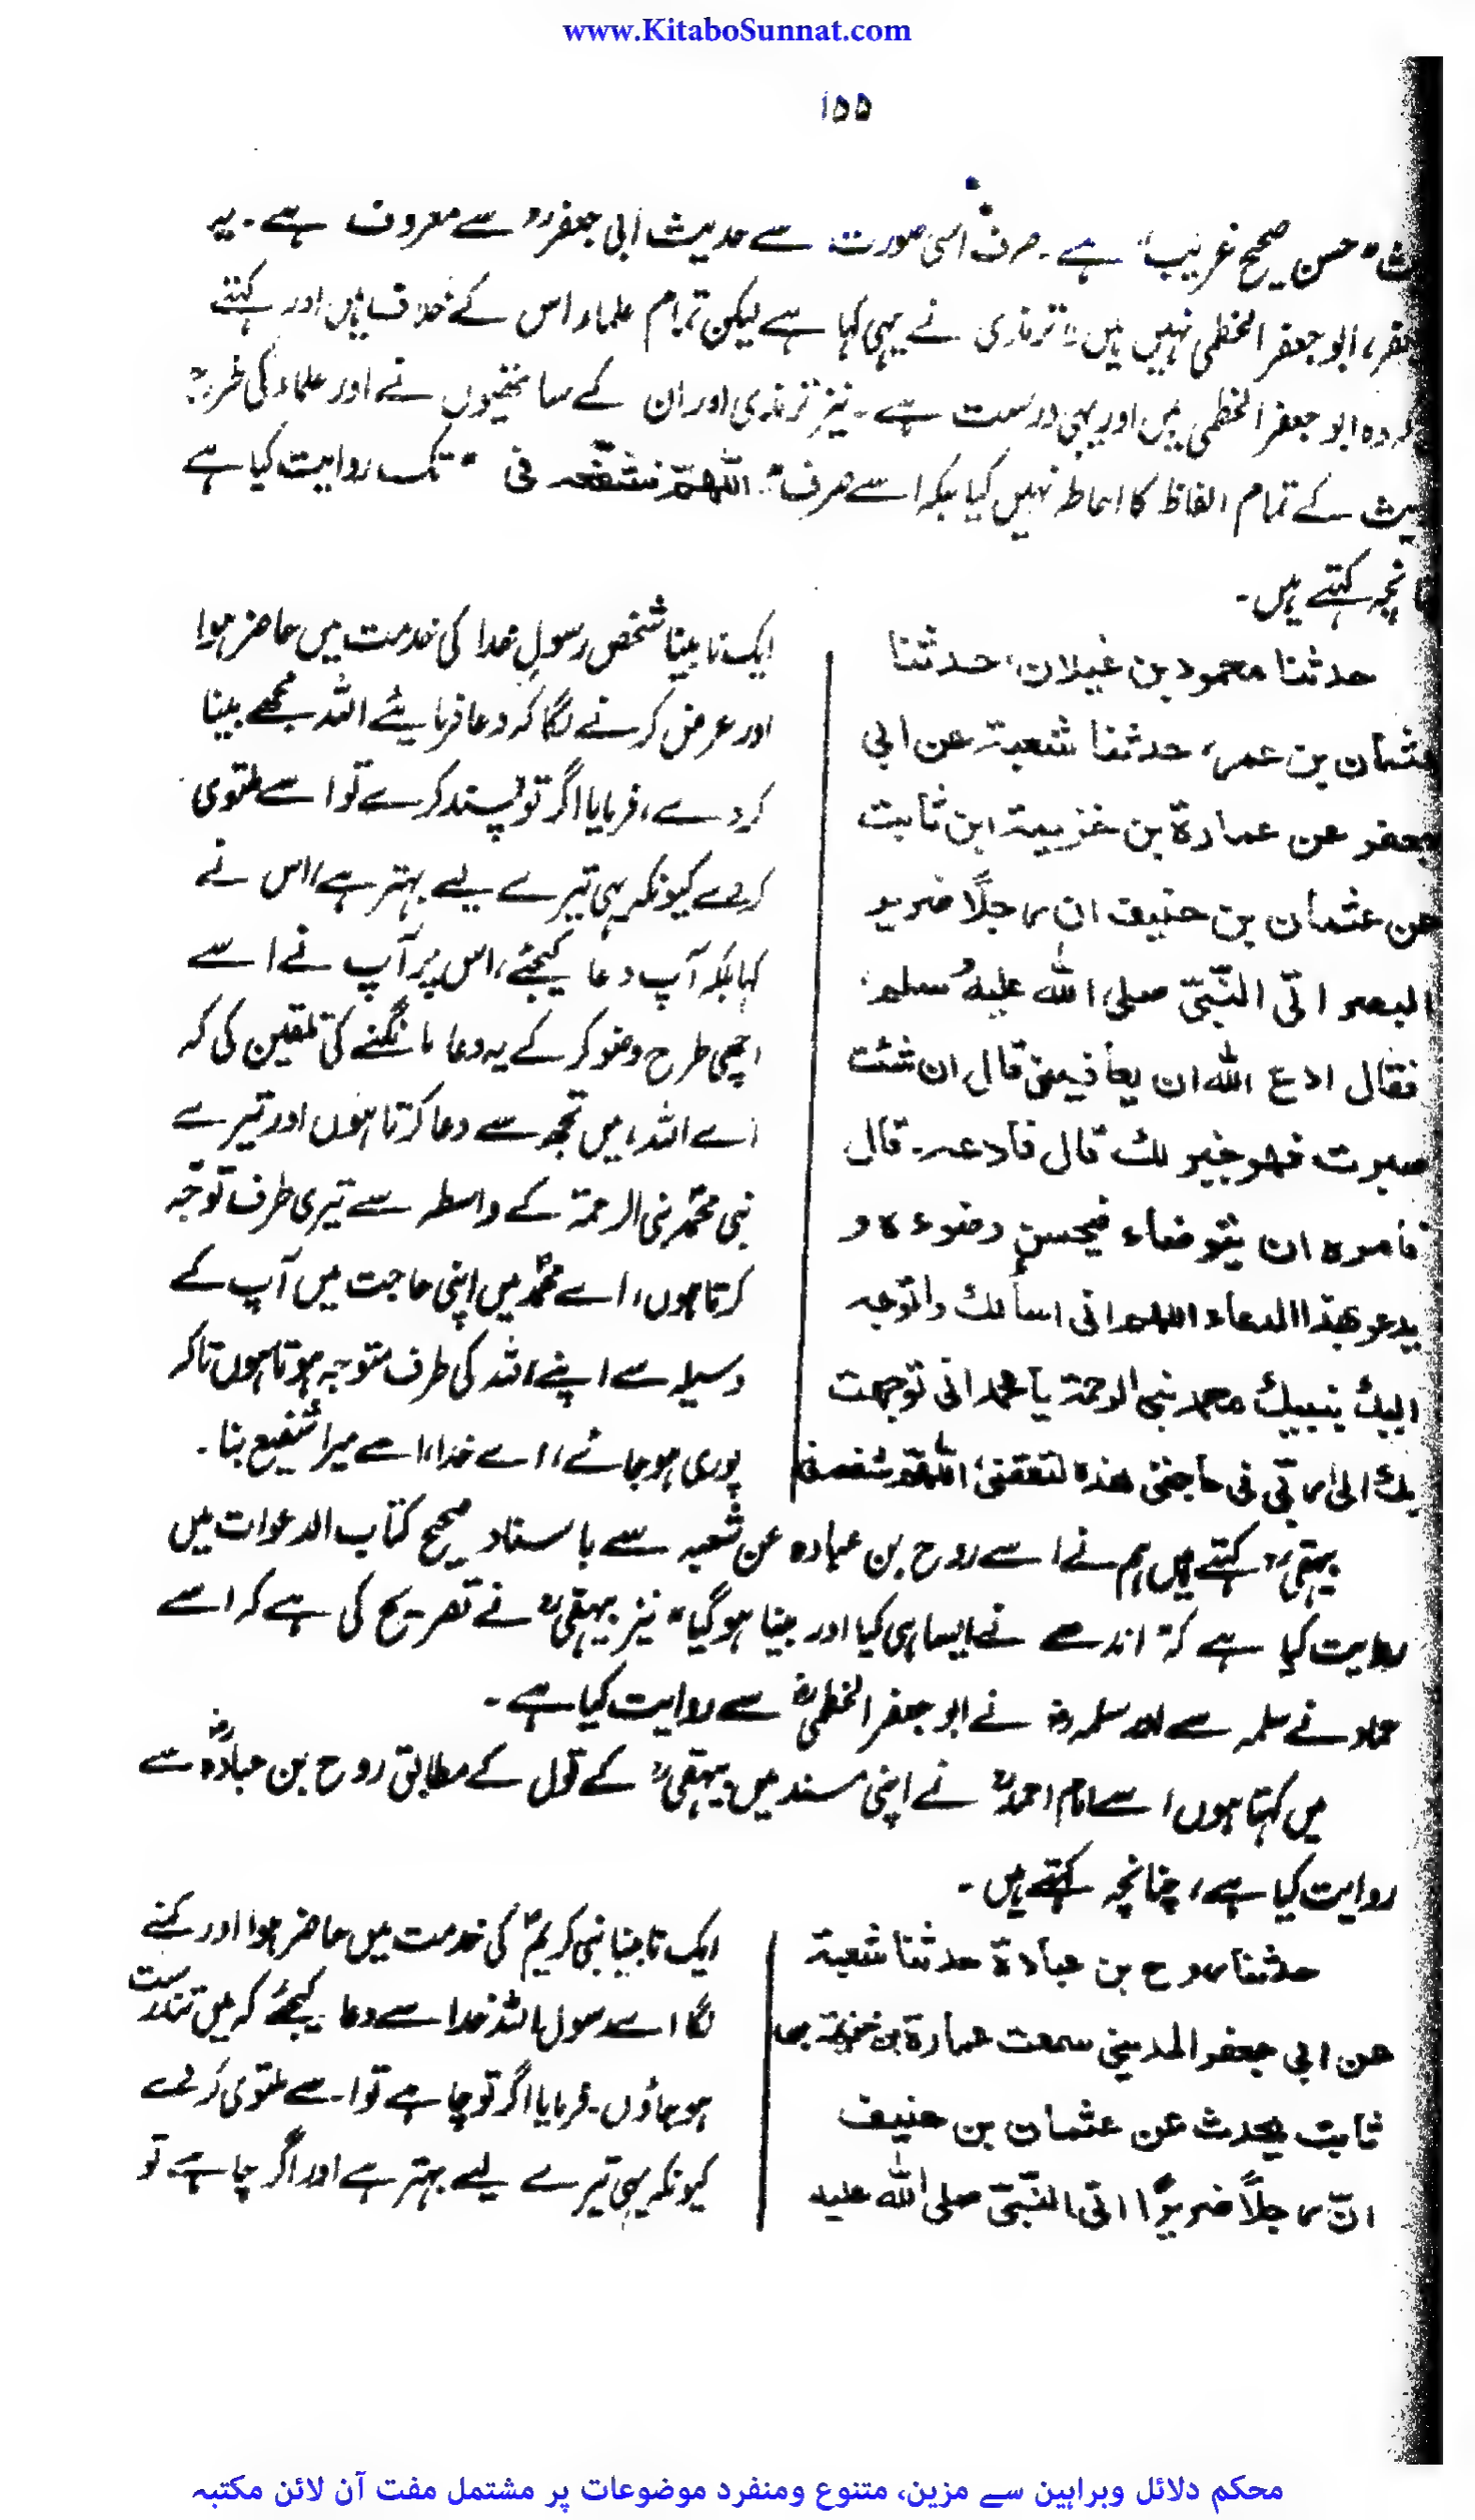 www.KitaboSunnat.com
۱۵۵
"حسن صحیح غریب" ہے۔ صرف اسی صورت سے حدیث ابی جعفرؒ سے معروف ہے۔ یہ
ابو جعفر الخطمی نہیں ہیں" ترمذی نے یہی کہا ہے لیکن تمام علماء اس کے خلاف ہیں اور کہتے
کہ وہ ابو جعفر الخطمی ہیں اور یہی درست ہے۔ نیز ترمذی اور ان کے ساتھیوں نے اور علماء کی طرح
کے تمام الفاظ کا احاطہ نہیں کیا بلکہ اسے صرف "اللھم فشفعہ فی" تک روایت کیا ہے
چنانچہ کہتے ہیں۔
حدثنا محمود بن غیلان، حدثنا
عثمان بن عمر، حدثنا شعبۃ عن ابی
جعفر عن عمارۃ بن خزیمۃ ابن ثابت
عن عثمان بن حنیف ان رجلًا ضریر
البصر اتی النّبیّ صلی اللہ علیہ وسلم،
فقال ادع اللہ ان یعافینی قال ان شئت
صبرت فھو خیر لک قال فادعہ۔ قال
فامرہ ان یتوضاء فیحسن وضوءہ و
یدعو بھذا الدعاء اللھم انی اسألک واتوجہ
الیک بنبیک محمد نبی الرحمۃ یا محمد انی توجھت
بک الیٰ ربّی فی حاجتی ھذہ لتقضیٰ اللّٰھم شفعہ فی
ایک نابینا شخص رسولِ خدا کی خدمت میں حاضر ہوا
اور عرض کرنے لگا کہ دعا فرمایئے اللہ مجھے بینا
کردے، فرمایا اگر تو پسند کرے تو اسے ملتوی
کردے کیونکہ یہی تیرے لیے بہتر ہے، اس نے
کہا بلکہ آپ دعا کیجئے، اس پر آپ نے اسے
اچھی طرح وضو کرکے یہ دعا مانگنے کی تلقین کی کہ
اے اللہ، میں تجھ سے دعا کرتا ہوں اور تیرے
نبی محمدؐ نبی الرحمۃ کے واسطہ سے تیری طرف توجّہ
کرتا ہوں، اے محمدؐ میں اپنی حاجت میں آپ کے
وسیلہ سے اپنے اللہ کی طرف متوجہ ہوتا ہوں تاکہ
پوری ہو جائے، اے خدا، اسے میرا شفیع بنا۔
بیہقیؒ کہتے ہیں ہم نے اسے روح بن عبادہ عن شعبہ سے باسناد صحیح کتاب الدعوات میں
روایت کیا ہے کہ "اندھے نے ایسا ہی کیا اور بینا ہوگیا" نیز بیہقیؒ نے تصریح کی ہے کہ اسے
حماد نے سلمہ سے اور سلمہؒ نے ابو جعفر الخطمیؒ سے روایت کیا ہے۔
میں کہتا ہوں اسے امام احمدؒ نے اپنی مسند میں بیہقیؒ کے قول کے مطابق روح بن عبادہؓ سے
روایت کیا ہے، چنانچہ کہتے ہیں۔
حدثنا روح بن عبادۃ حدثنا شعبۃ
عن ابی جعفر المدینی سمعت عمارۃ بن خزیمۃ بن
ثابت یحدث عن عثمان بن حنیف
انّ رجلاً ضریرًا اتی النّبیّ صلی اللہ علیہ
ایک نابینا نبی کریمؐ کی خدمت میں حاضر ہوا اور کہنے
لگا اے رسول اللہ خدا سے دعا کیجئے کہ میں تندرست
ہو جاؤں۔ فرمایا اگر تو چاہے تو اسے ملتوی کردے
کیونکہ یہی تیرے لیے بہتر ہے اور اگر چاہے تو
محکم دلائل وبراہین سے مزین، متنوع ومنفرد موضوعات پر مشتمل مفت آن لائن مکتبہ